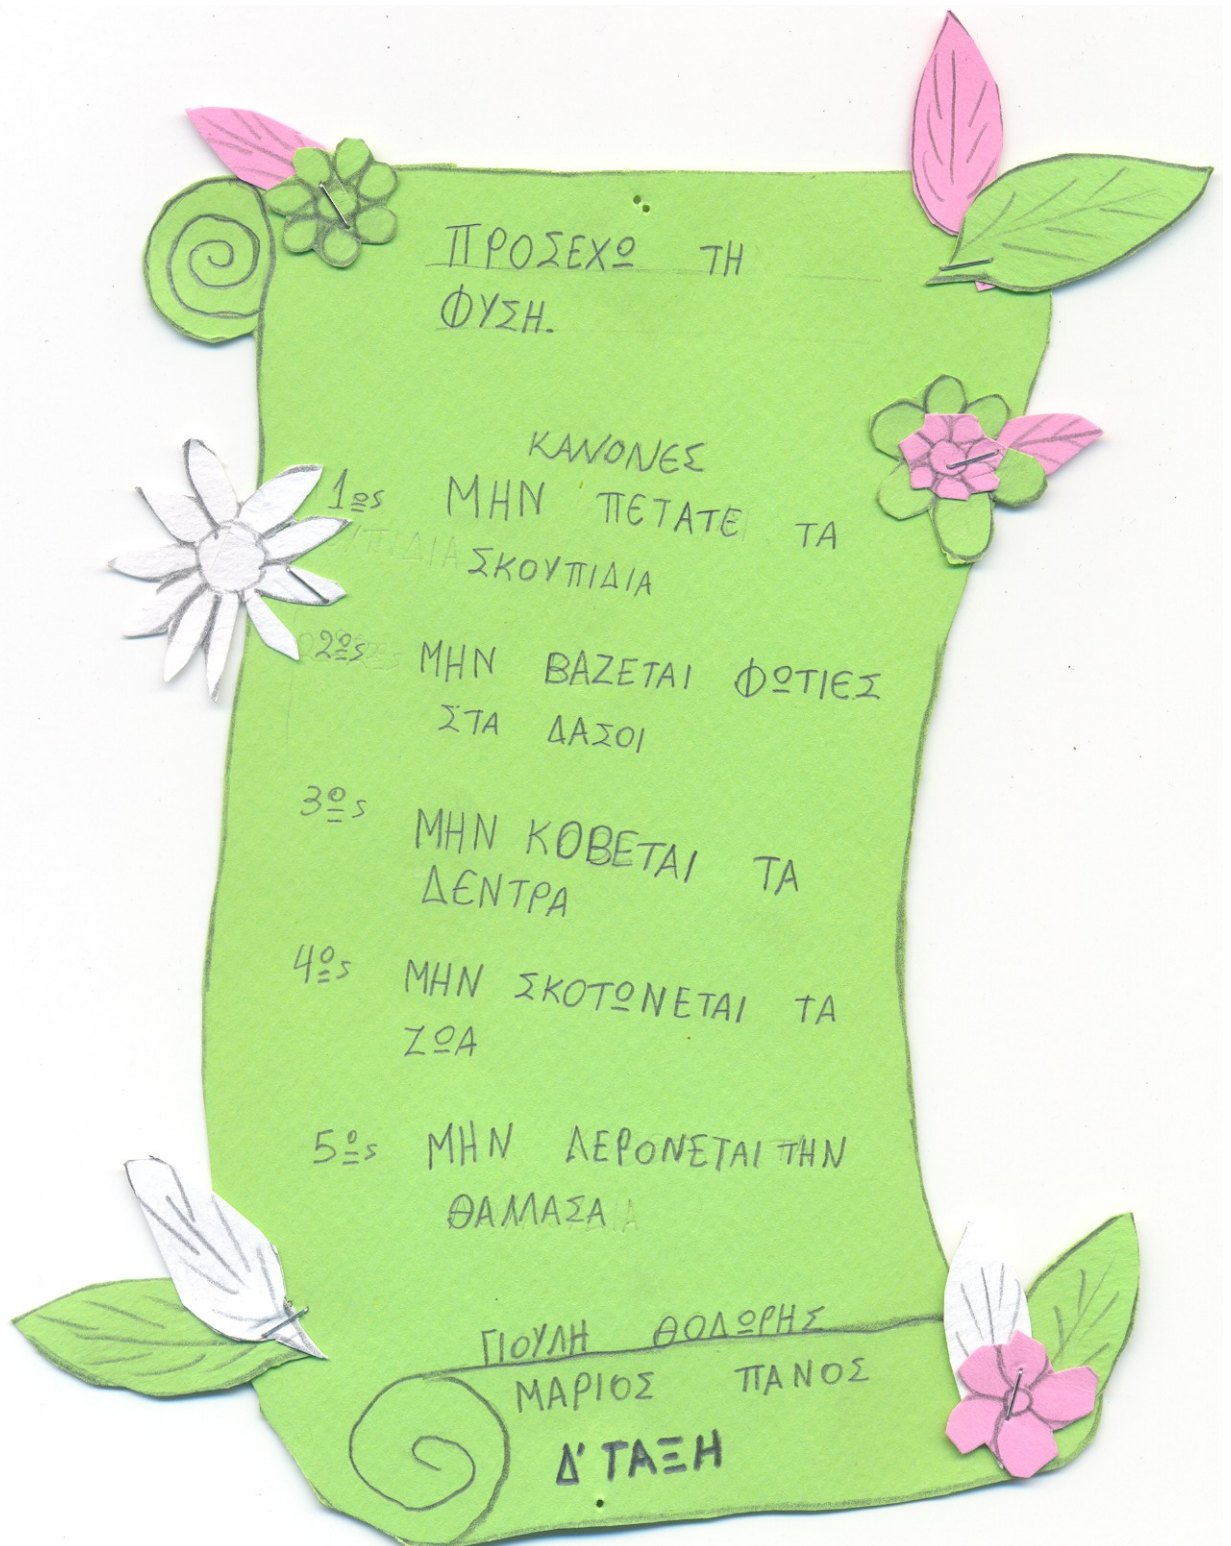 ΠΡΟΣΕΧΩ ΤΗ
ΦΥΣΗ.
ΚΑΝΟΝΕΣ
1ος ΜΗΝ ΠΕΤΑΤΕ ΤΑ
ΣΚΟΥΠΙΔΙΑ
2ος ΜΗΝ ΒΑΖΕΤΑΙ ΦΩΤΙΕΣ
ΣΤΑ ΔΑΣΟΙ
3ος ΜΗΝ ΚΟΒΕΤΑΙ ΤΑ
ΔΕΝΤΡΑ
4ος ΜΗΝ ΣΚΟΤΩΝΕΤΑΙ ΤΑ
ΖΩΑ
5ος ΜΗΝ ΛΕΡΟΝΕΤΑΙ ΤΗΝ
ΘΑΛΛΑΣΑ
ΓΙΟΥΛΗ ΘΟΔΩΡΗΣ
ΜΑΡΙΟΣ ΠΑΝΟΣ
Δ' ΤΑΞΗ